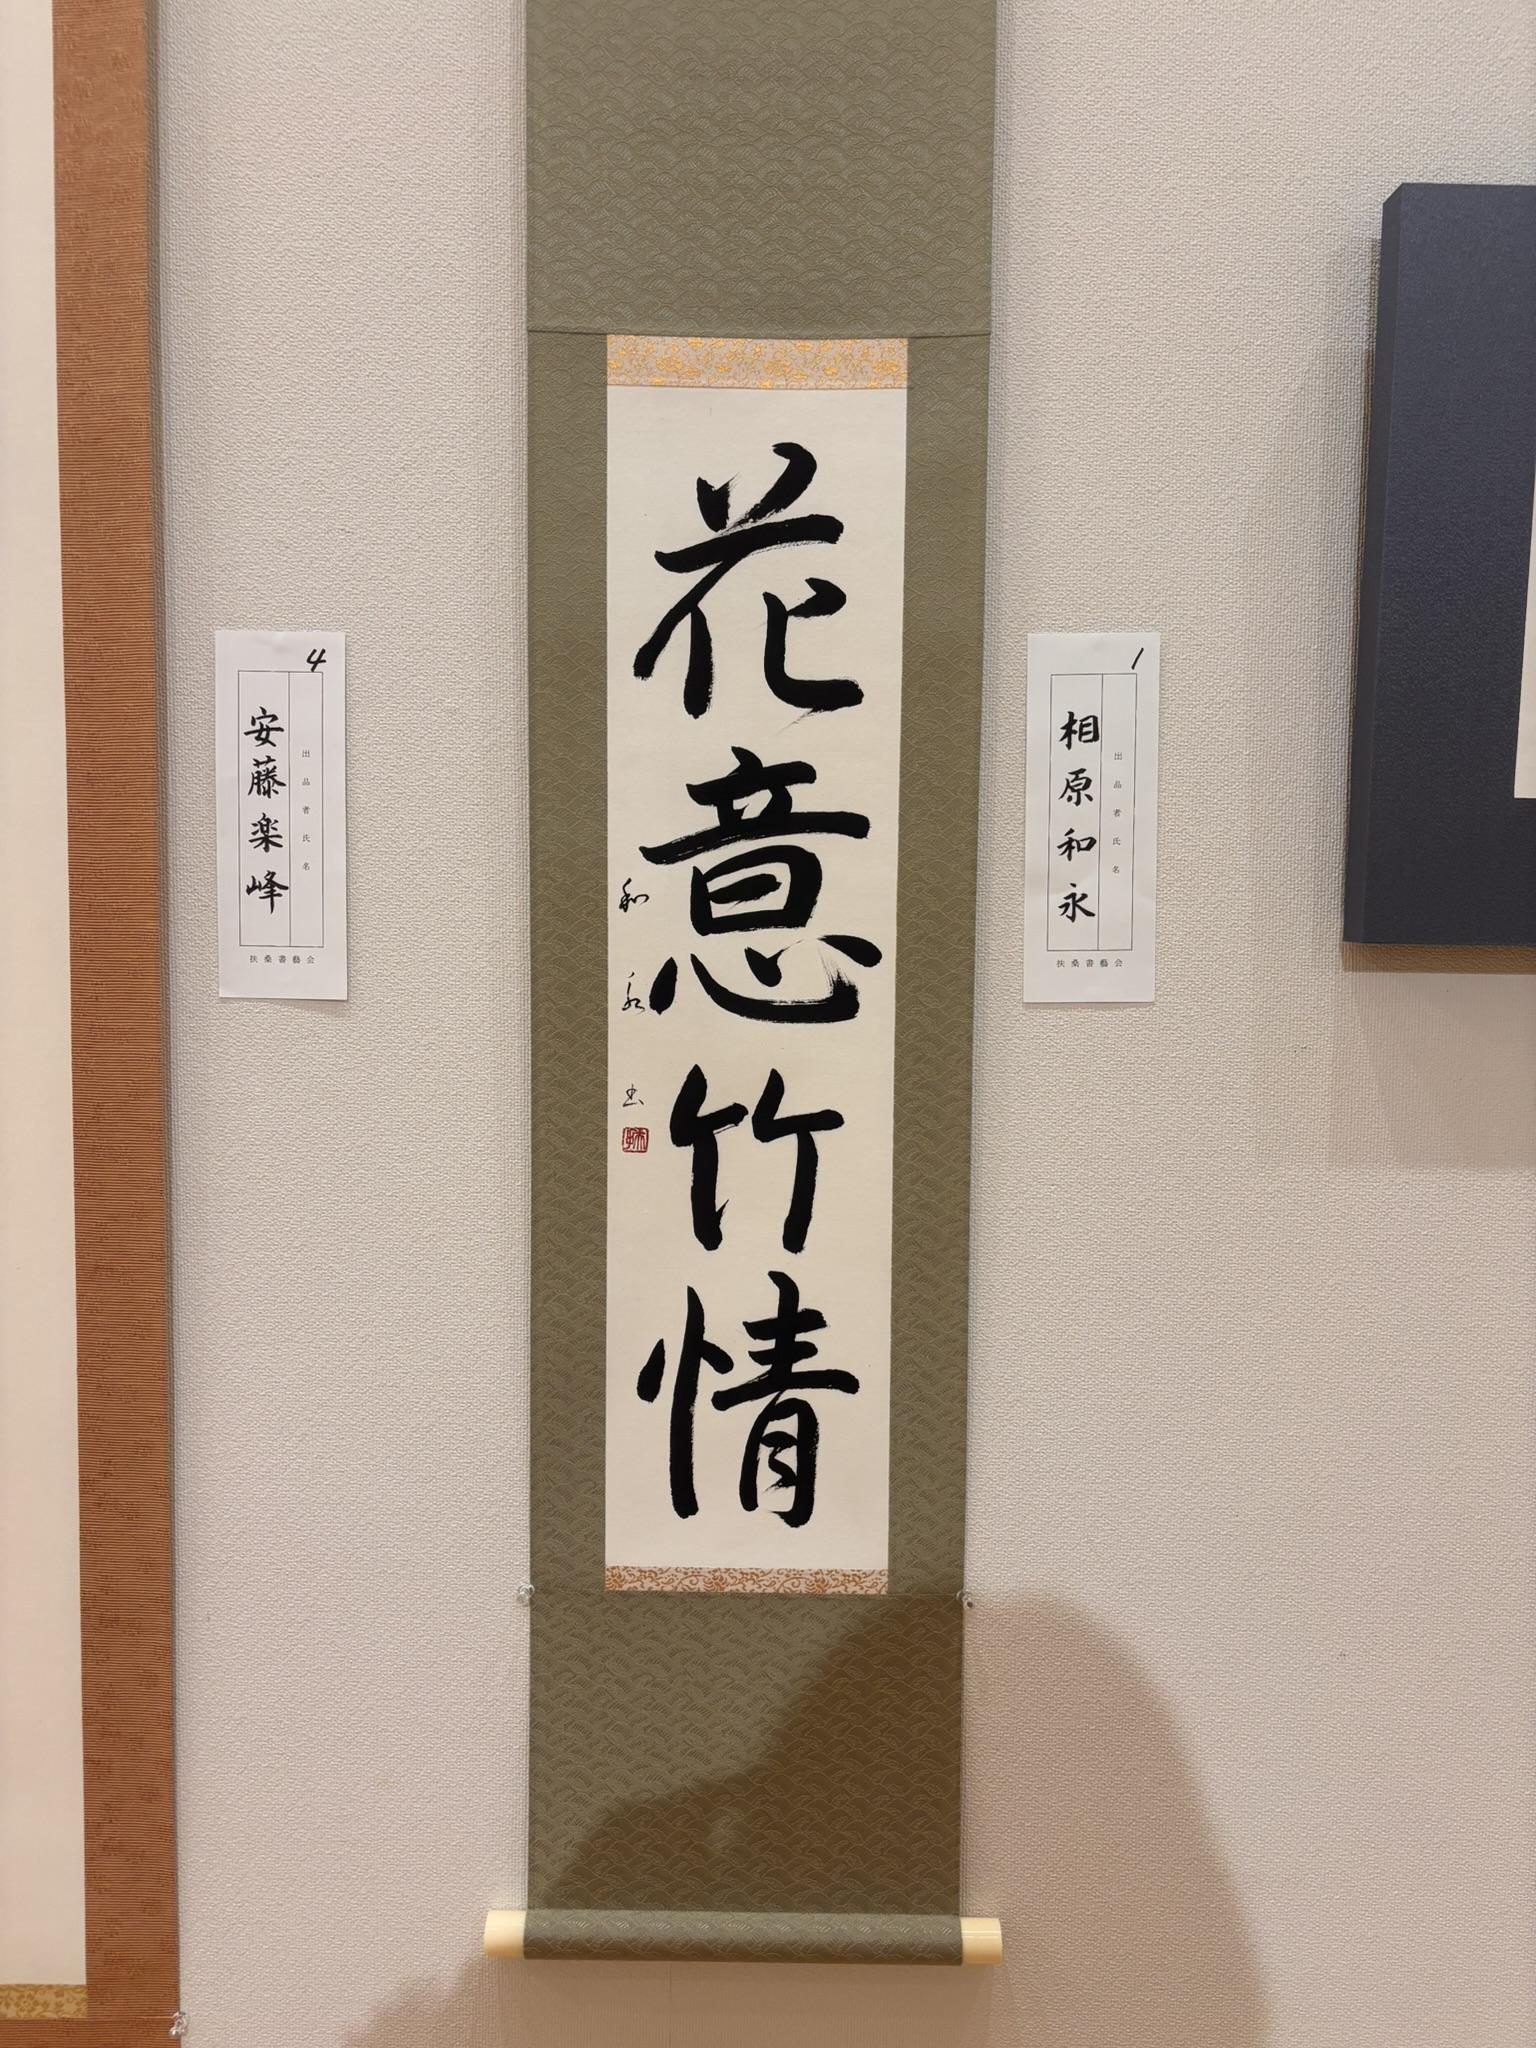 1
出品者氏名
相原和永
扶桑書藝会
花意竹情
和永书
4
出品者氏名
安藤楽峰
扶桑書藝会